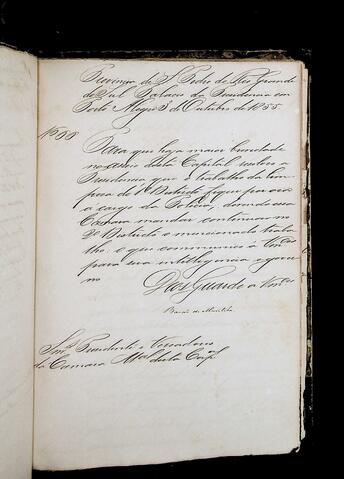 Provincia de S. Pedro do Rio Grande
do Sul Palacio da Presidencia em
Porto Alegre 3 de Outubro de 1855
Nº 88
Para que haja maior brevidade
no asseio desta Capital
Presidencia que o trabalho da lim-
pesa do 1º Districto fique por ora
a cargo da Policia, devendo essa
Camara mandar continuar no
2º Districto o mencionado traba-
lho, o que communico a Vmces
para sua intelligencia e gover-
no
Deos Guarde a Vmces
Barão de Muritiba
Snres Presidente e Vereadores
da Camara Mal desta Capal